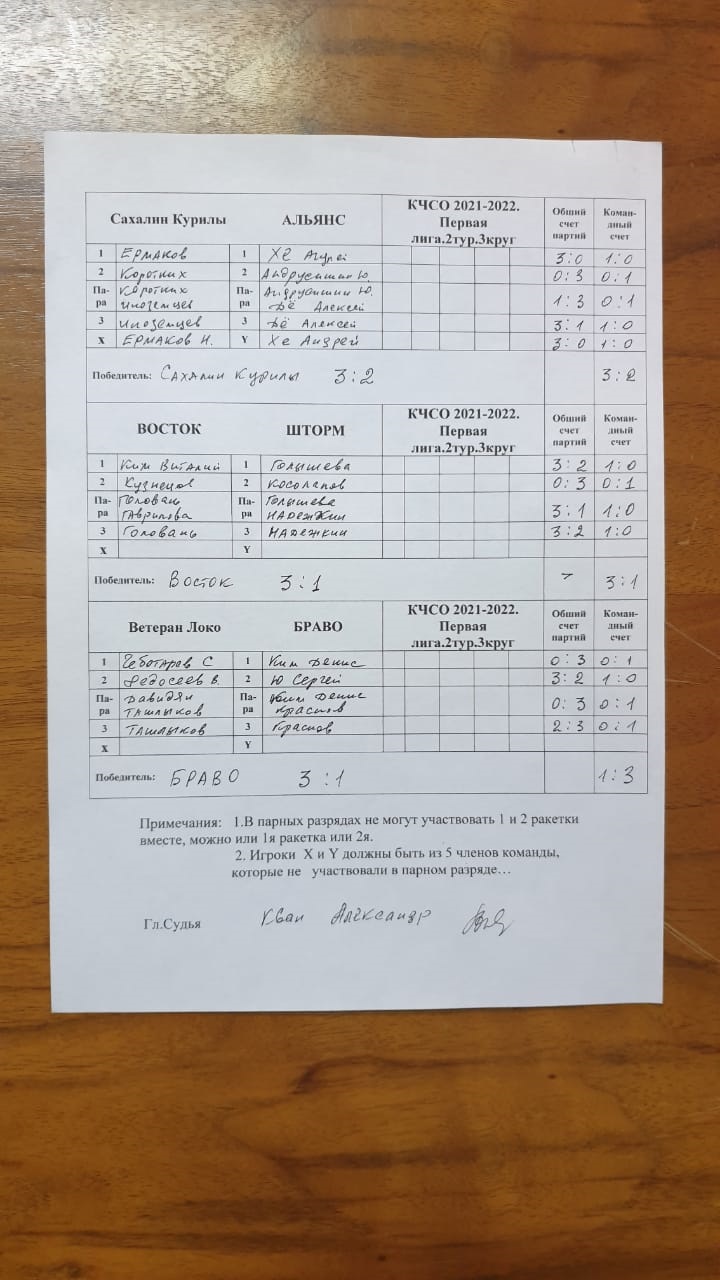 Сахалин Курилы АЛЬЯНС КЧСО 2021-2022. Первая лига.2тур.3круг Общий счет партий Коман-дный счет
1 Ермаков 1 Хе 3:0 1:0
2 Коротких 2 Андрусишин Ю. 0:3 0:1
Па-ра Коротких Иноземцев Па-ра Андрусишин Ю. Дё Алексей 1:3 0:1
3 Иноземцев 3 Дё Алексей 3:1 1:0
X Ермаков Н. Y Хе Андрей 3:0 1:0
Победитель: Сахалин Курилы 3:2 3:2
ВОСТОК ШТОРМ КЧСО 2021-2022. Первая лига.2тур.3круг Общий счет партий Коман-дный счет
1 Ким Виталий 1 Голышева 3:2 1:0
2 Кузнецов 2 Косолапов 0:3 0:1
Па-ра Головань Гаврилова Па-ра Голышева Надежкин 3:1 1:0
3 Головань 3 Надежкин 3:2 1:0
X Y
Победитель: Восток 3:1 3:1
Ветеран Локо БРАВО КЧСО 2021-2022. Первая лига.2тур.3круг Общий счет партий Коман-дный счет
1 Чеботарев С 1 Ким Денис 0:3 0:1
2 Федосеев В. 2 Ю Сергей 3:2 1:0
Па-ра Давидян Ташлыков Па-ра Ким Денис Краснов 0:3 0:1
3 Ташлыков 3 Краснов 2:3 0:1
X Y
Победитель: БРАВО 3:1 1:3
Примечания: 1.В парных разрядах не могут участвовать 1 и 2 ракетки
вместе, можно или 1я ракетка или 2я.
2. Игроки X и Y должны быть из 5 членов команды,
которые не участвовали в парном разряде…
Гл.Судья Кван Александр